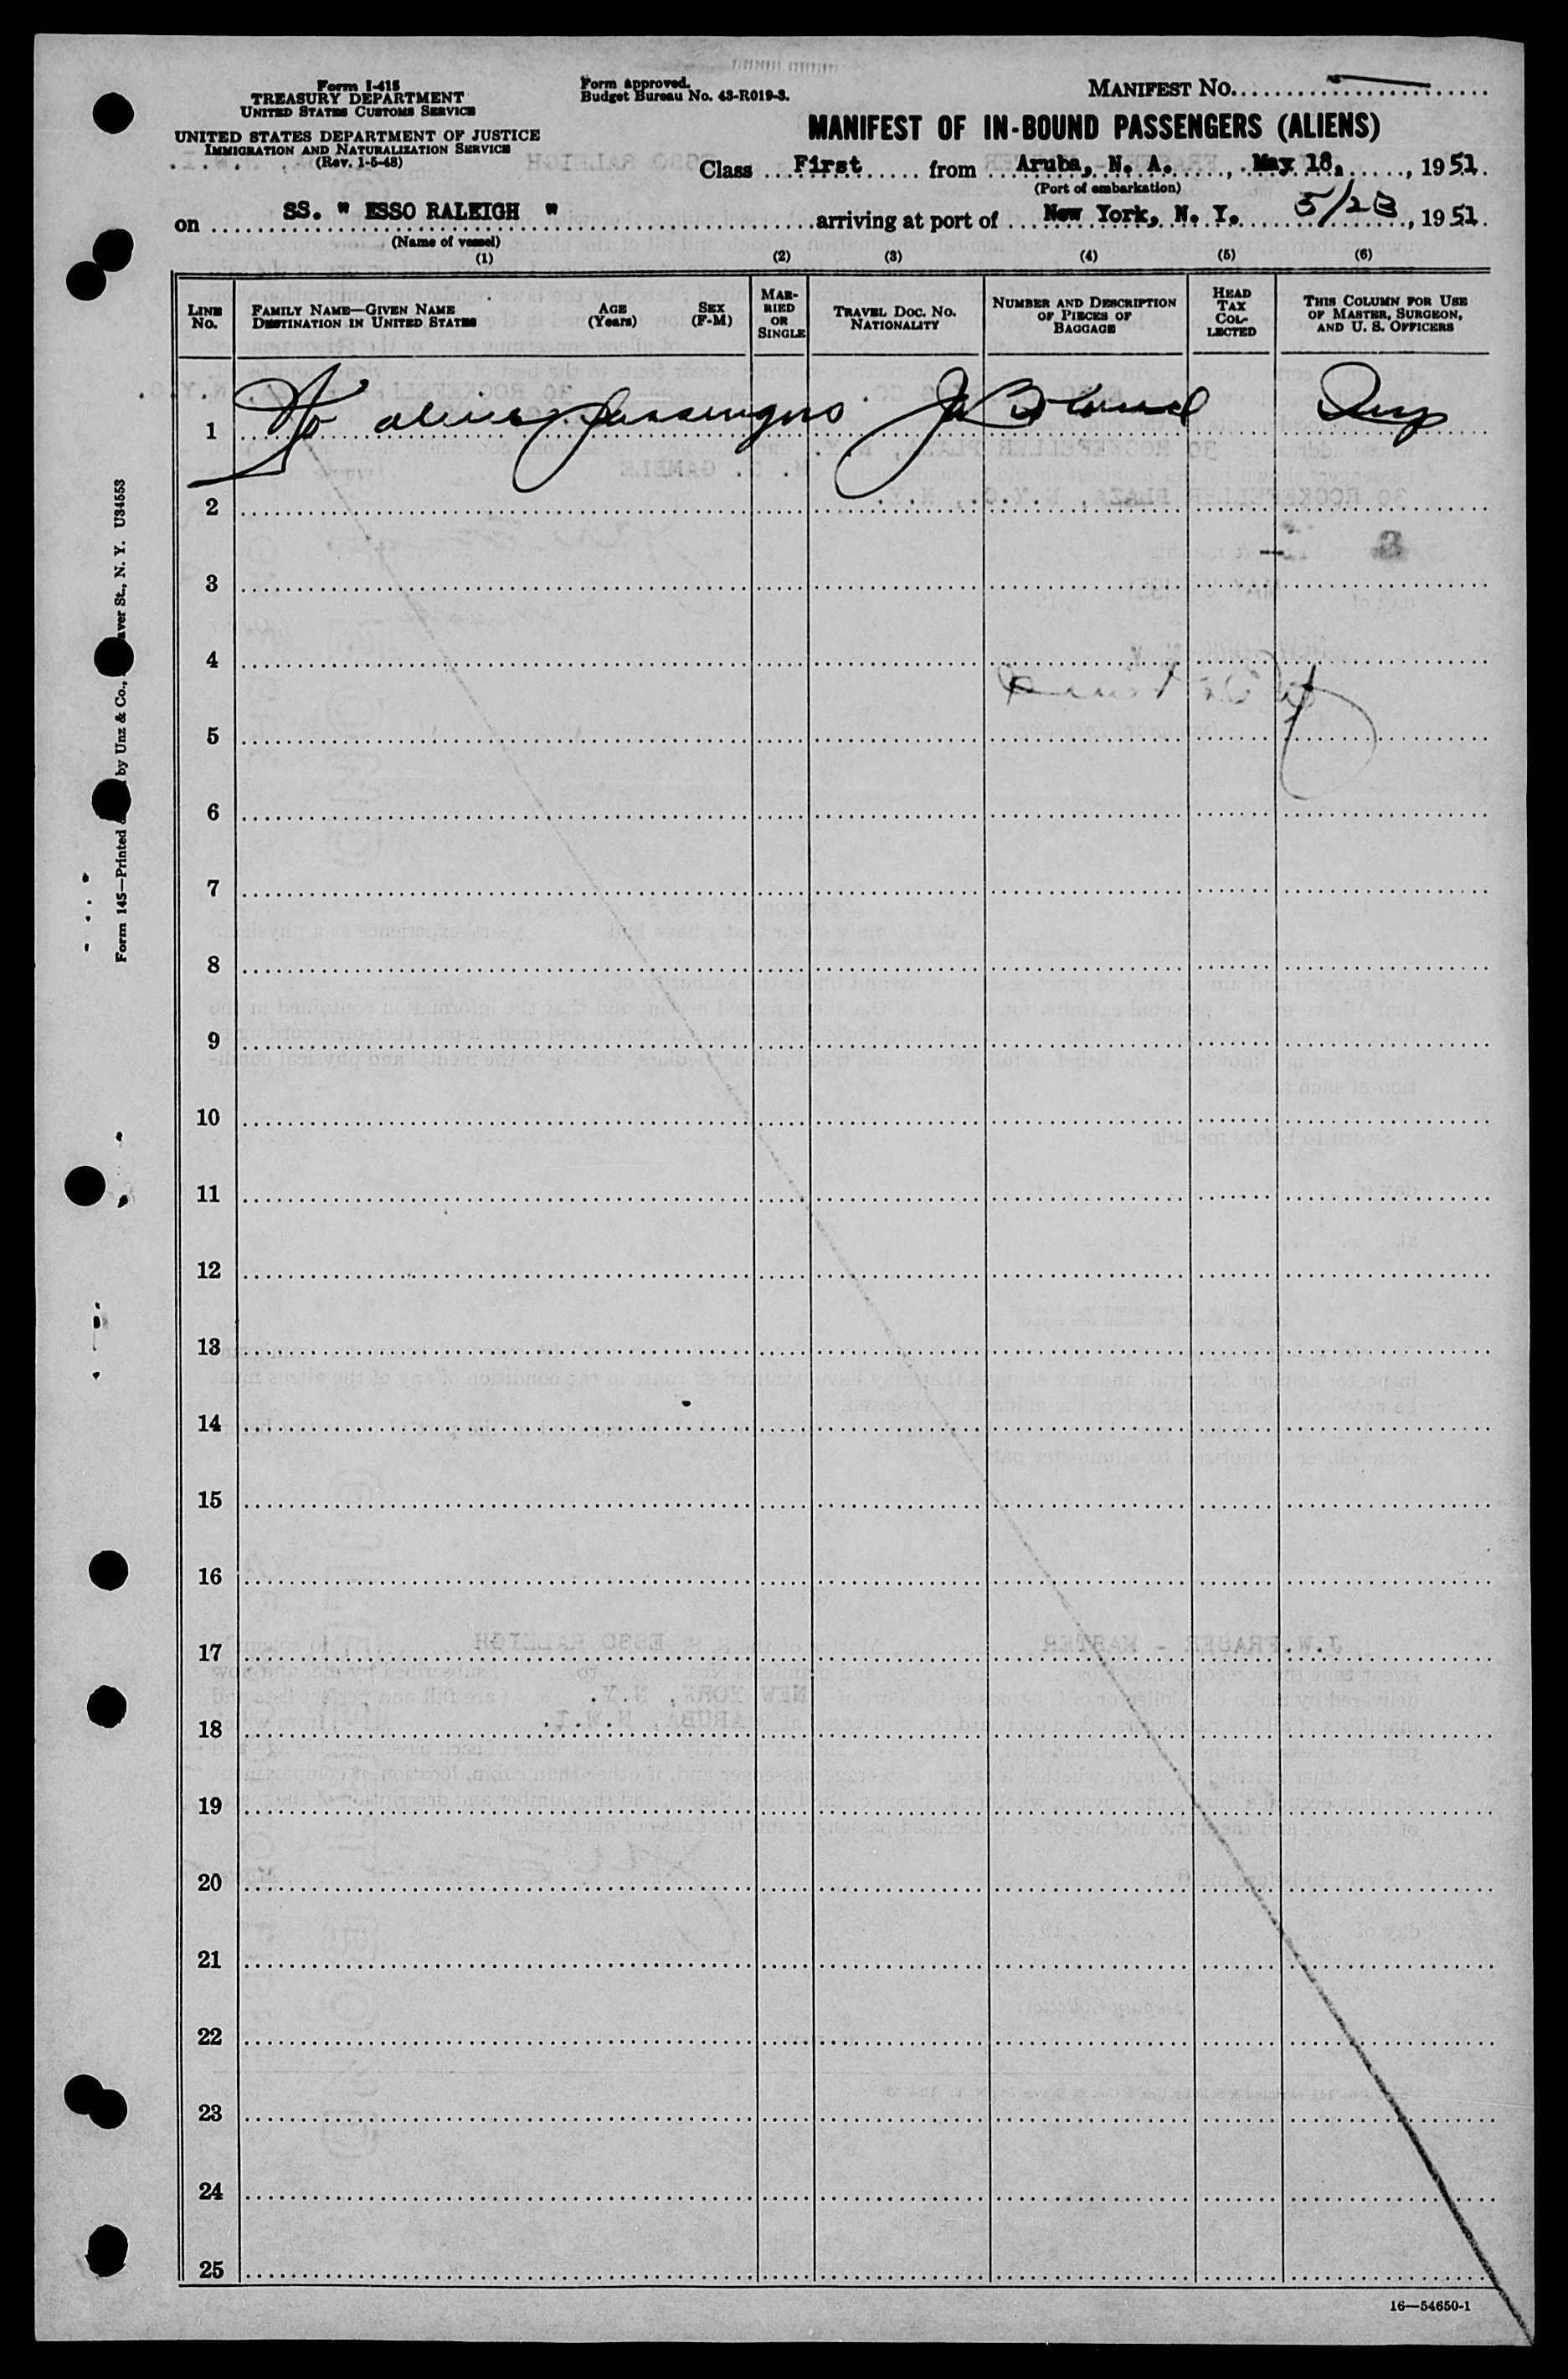 Form I-415
TREASURY DEPARTMENT
UNITED STATES CUSTOMS SERVICE
UNITED STATES DEPARTMENT OF JUSTICE
IMMIGRATION AND NATURALIZATION SERVICE
(Rev. 1-5-48)
Form approved.
Budget Bureau No. 43-R019-3.
MANIFEST NO.
MANIFEST OF IN-BOUND PASSENGERS (ALIENS)
Class First from Aruba, N. A., May 18, 1951
(Port of embarkation)
on SS. " ESSO RALEIGH " arriving at port of New York, N. Y. 5/23, 1951
(Name of vessel)
(1) (2) (3) (4) (5) (6)
LINE NO.
FAMILY NAME—GIVEN NAME
DESTINATION IN UNITED STATES
AGE (Years)
SEX (F-M)
MARRIED OR SINGLE
TRAVEL DOC. NO. NATIONALITY
NUMBER AND DESCRIPTION OF PIECES OF BAGGAGE
HEAD TAX COLLECTED
THIS COLUMN FOR USE OF MASTER, SURGEON, AND U. S. OFFICERS
1 No alien passengers
2
3
4
5
6
7
8
9
10
11
12
13
14
15
16
17
18
19
20
21
22
23
24
25
Form 145—Printed by Unz & Co., St., N. Y. U34553
16—54650-1